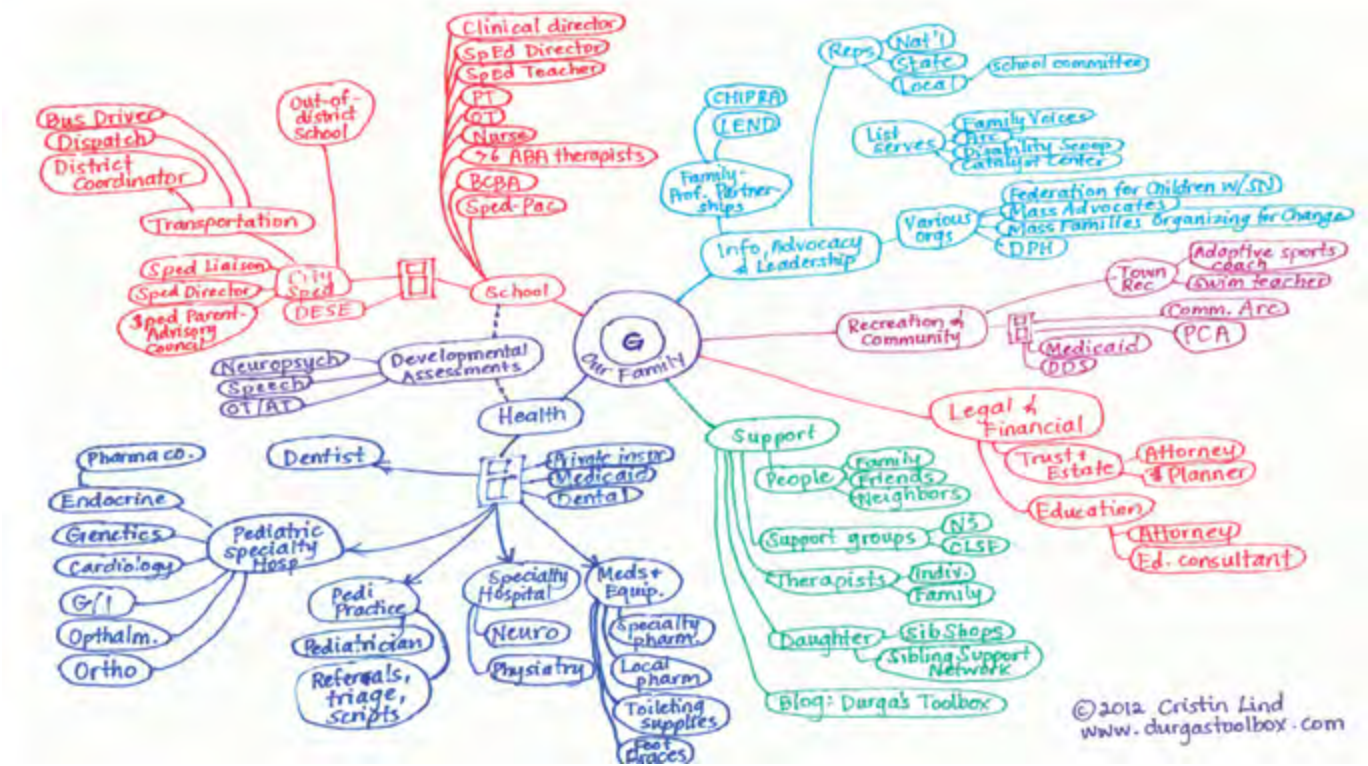 G
Our Family
School
Clinical director
SpEd Director
SpEd Teacher
PT
OT
Nurse
>6 ABA therapists
BCBA
Sped-Pac
DESE
City
Sped
Out-of-
district
School
Transportation
Bus Driver
Dispatch
District
Coordinator
Sped Liaison
Sped Director
Sped Parent-
Advisory
Council
Developmental
Assessments
Neuropsych
Speech
OT/AT
Health
Private insur
Medicaid
Dental
Dentist
Pediatric
specialty
Hosp
Pharma co.
Endocrine
Genetics
Cardiology
G/i
Opthalm.
Ortho
Pedi
Practice
Pediatrician
Referrals,
triage,
scripts
Specialty
Hospital
Neuro
Physiatry
Meds+
Equip.
Specialty
pharm.
Local
pharm
Toileting
supplies
Foot
Braces
Info, Advocacy
& Leadership
Family-
Prof. Partner-
ships
CHIPRA
LEND
Reps
Nat'l
State
Local
School committee
List
serves
Family Voices
Arc
Disability Scoop
Catalyst Center
Various
orgs
Federation for Children w/SN
Mass Advocates
Mass Families Organizing for Change
DPH
Recreation &
Community
Town
Rec
Adaptive sports
coach
Swim teacher
Comm. Arc
PCA
Medicaid
DDS
Legal &
Financial
Trust+
Estate
Attorney
$ Planner
Education
Attorney
Ed. consultant
Support
People
Family
Friends
Neighbors
Support groups
NS
Therapists
Indiv.
Family
Daughter
SibShops
Sibling Support
Network
Blog: Durga's Toolbox
©2012 Cristin Lind
www.durgastoolbox.com